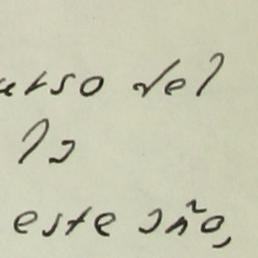 urso del
la
este año,